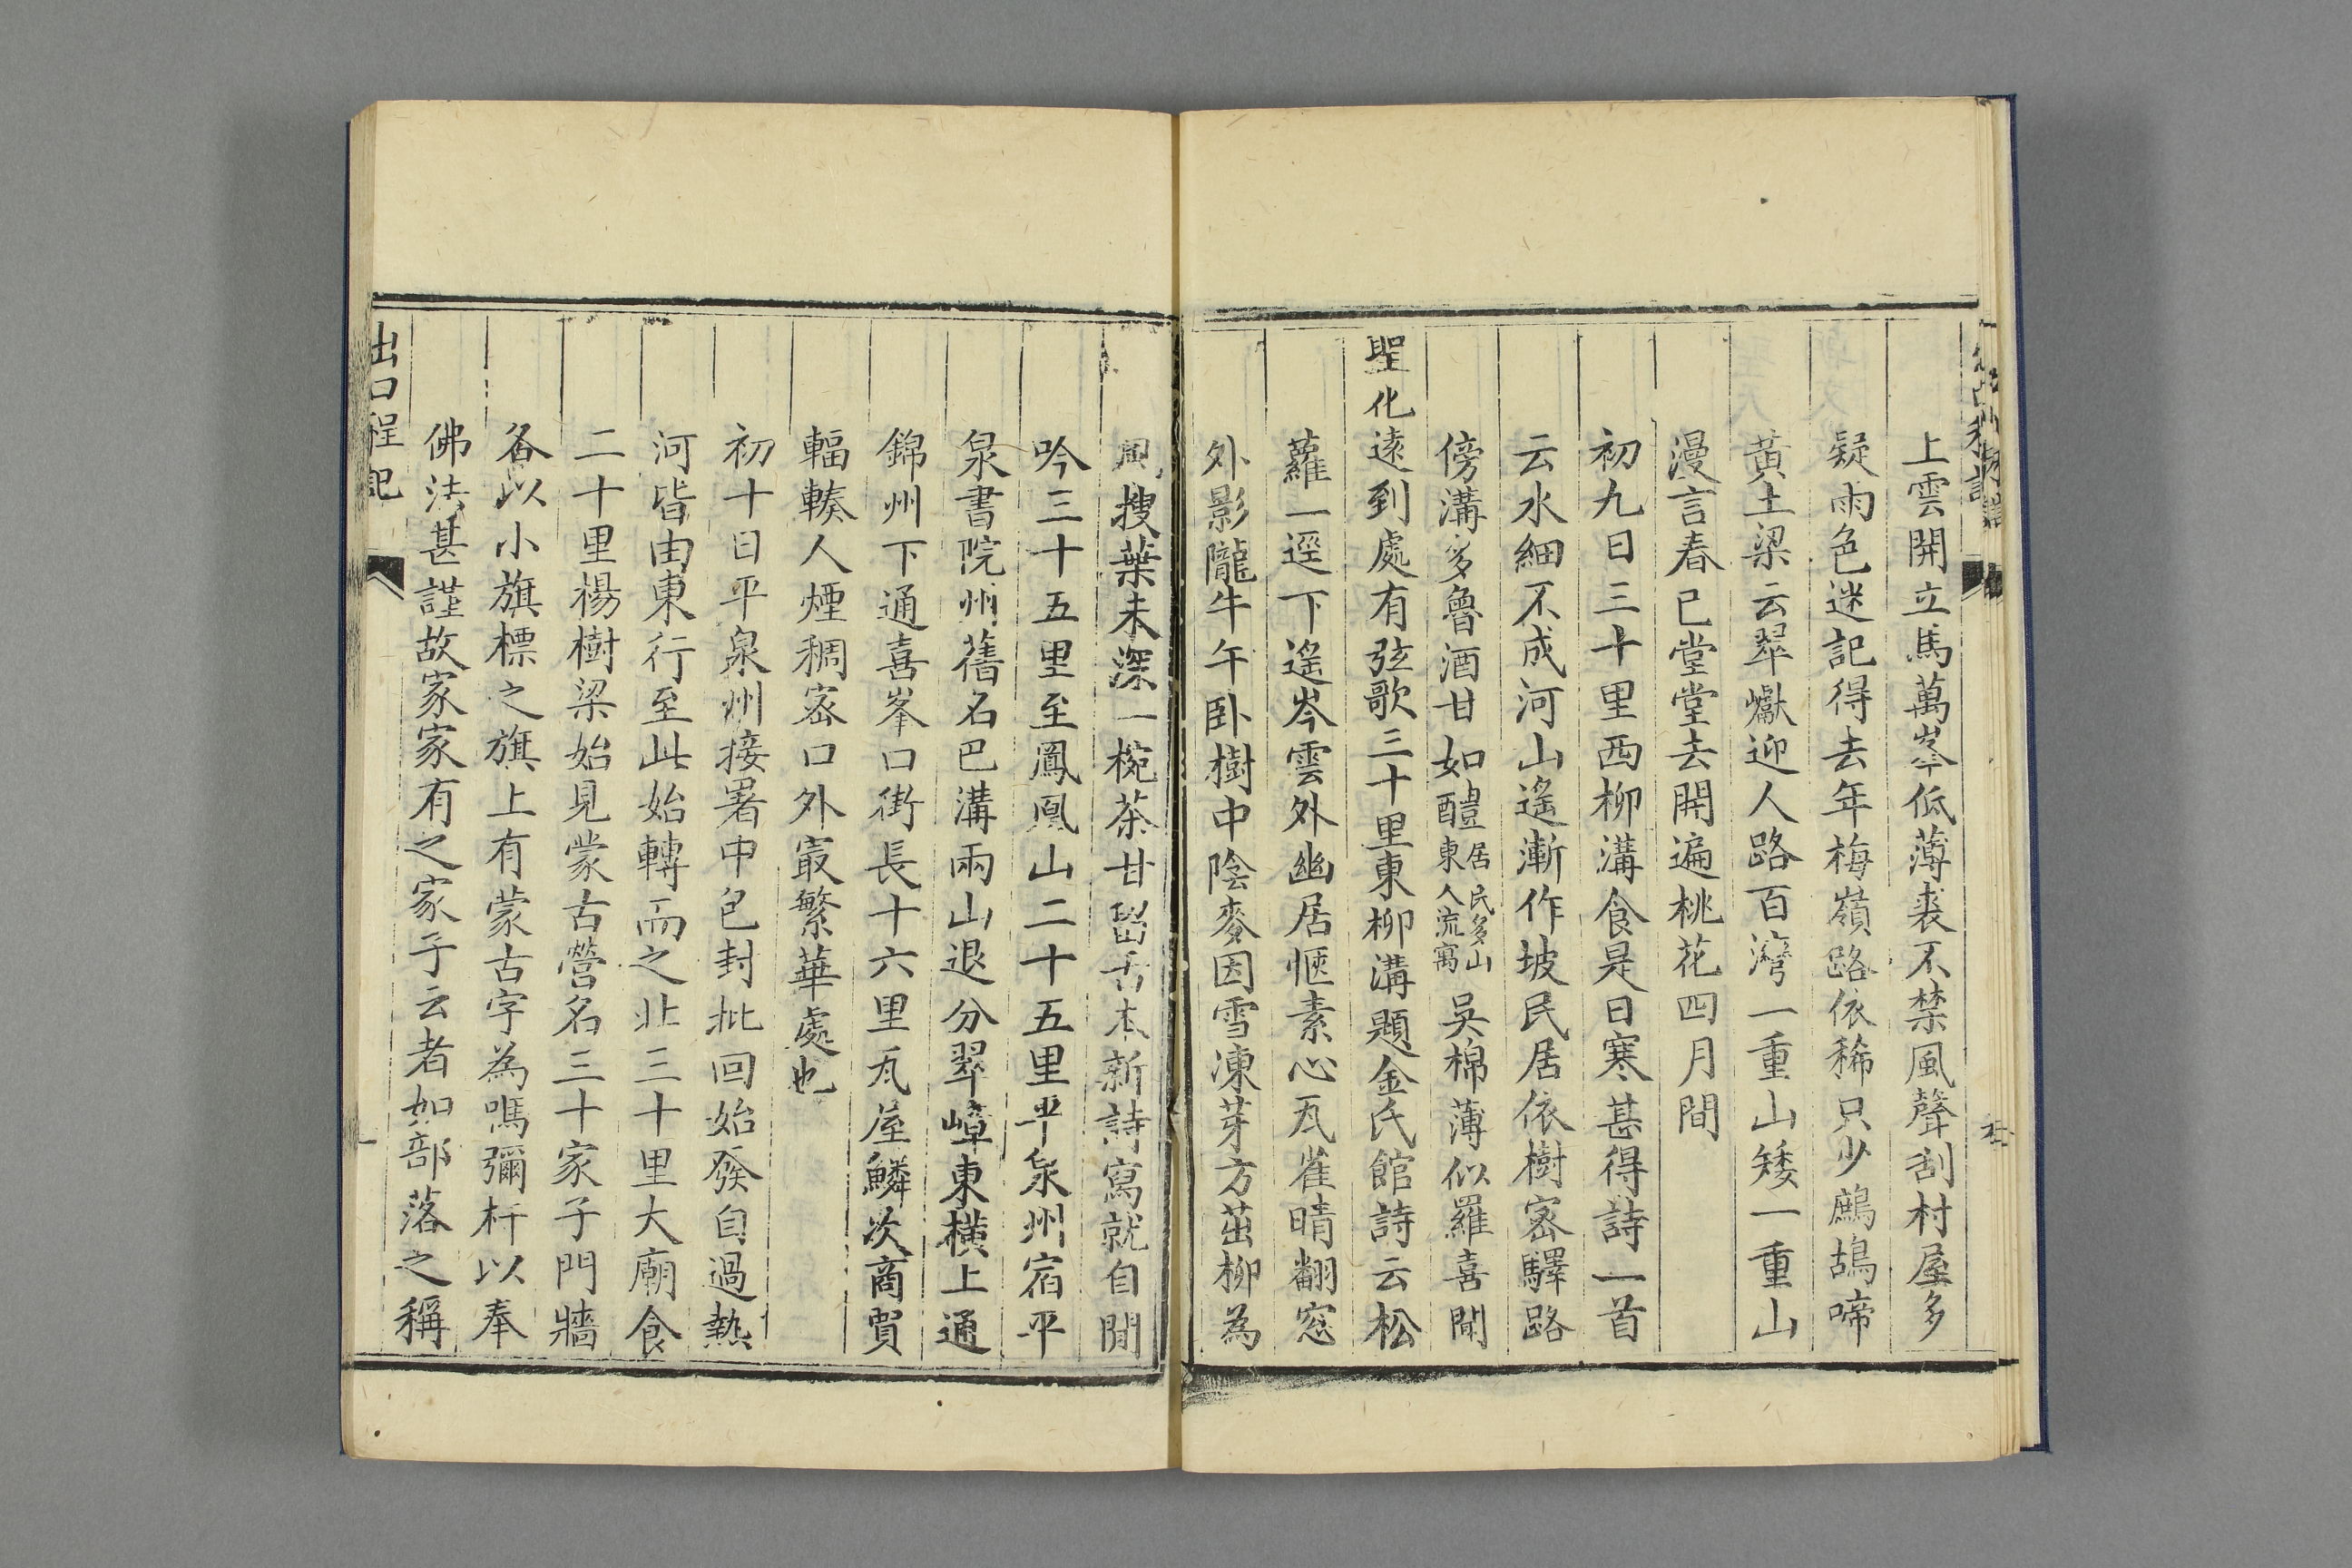 上雲開立馬萬峯低薄裘不禁風聲刮村屋多
疑雨色迷記得去年梅嶺路依稀只少鷓鴣啼
黃土梁云翠巘迎人路百灣一重山矮一重山
漫言春已堂堂去開遍桃花四月間
初九日三十里西柳溝食是日寒甚得詩一首
云水細不成河山遙漸作坡民居依樹密驛路
傍溝多魯酒甘如醴居民多山東人流寓吳棉薄似羅喜聞
聖化遠到處有弦歌三十里東柳溝題金氏館詩云松
蘿一逕下遙岑雲外幽居愜素心瓦雀晴翻窓
外影隴牛午卧樹中陰麥因雪凍芽方茁柳為
風搜葉未深一椀茶甘舌本新詩寫就自閒
吟三十五里至鳳凰山二十五里平泉州宿平
泉書院州舊名巴溝兩山退分翠嶂東橫上通
錦州下通喜峯口街長十六里瓦屋鱗次商賈
輻輳人煙稠密口外㝡繁華處也
初十日平泉州接署中包封批回始發自過熱
河皆由東行至此始轉而之北三十里大廟食
二十里楊樹梁始見蒙古營名三十家子門牆
各以小旗標之旗上有蒙古字為嗎彌杆以奉
佛法甚謹故家家有之家子云者如部落之稱
出口程記
一